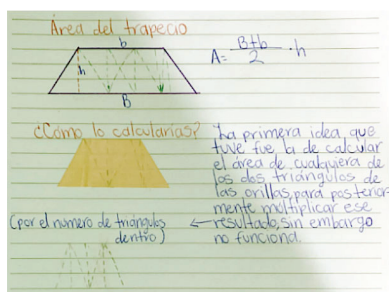 Área del trapecio
b
h
B
A = B+b/2 · h
¿Cómo lo calcularías?
La primera idea que
tuve fue la de calcular
el área de cualquiera de
los dos triángulos de
las orillas, para posterior
mente multiplicar ese
resultado, sin embargo
no funciona.
(por el número de triángulos
dentro)